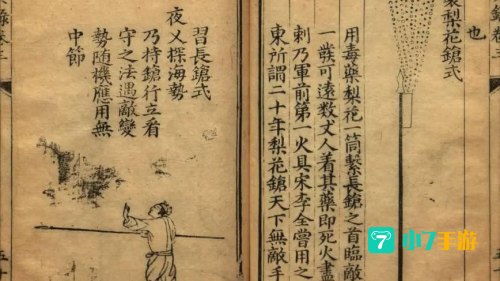 梨花鎗式
也
用毒藥梨花一筒繫長鎗之首臨敵
一發可遠数丈人着其藥即死火盡
刺乃軍前第一火具宋李全嘗用之
東所謂二十年梨花鎗天下無敵手
習長鎗式
夜乂探海勢
乃持鎗行立看
守之法遇敵變
勢随機應用無
中節
卷三
7 小7手游